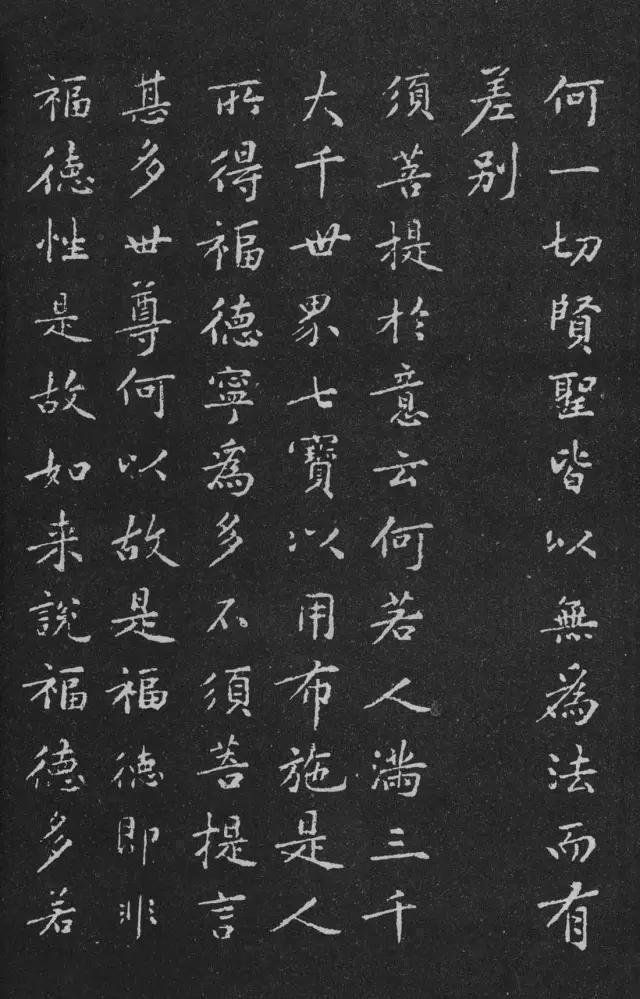 何一切賢聖皆以無為法而有
差别
須菩提於意云何若人滿三千
大千世界七寶以用布施是人
所得福德寧為多不須菩提言
甚多世尊何以故是福德即非
福德性是故如来說福德多若